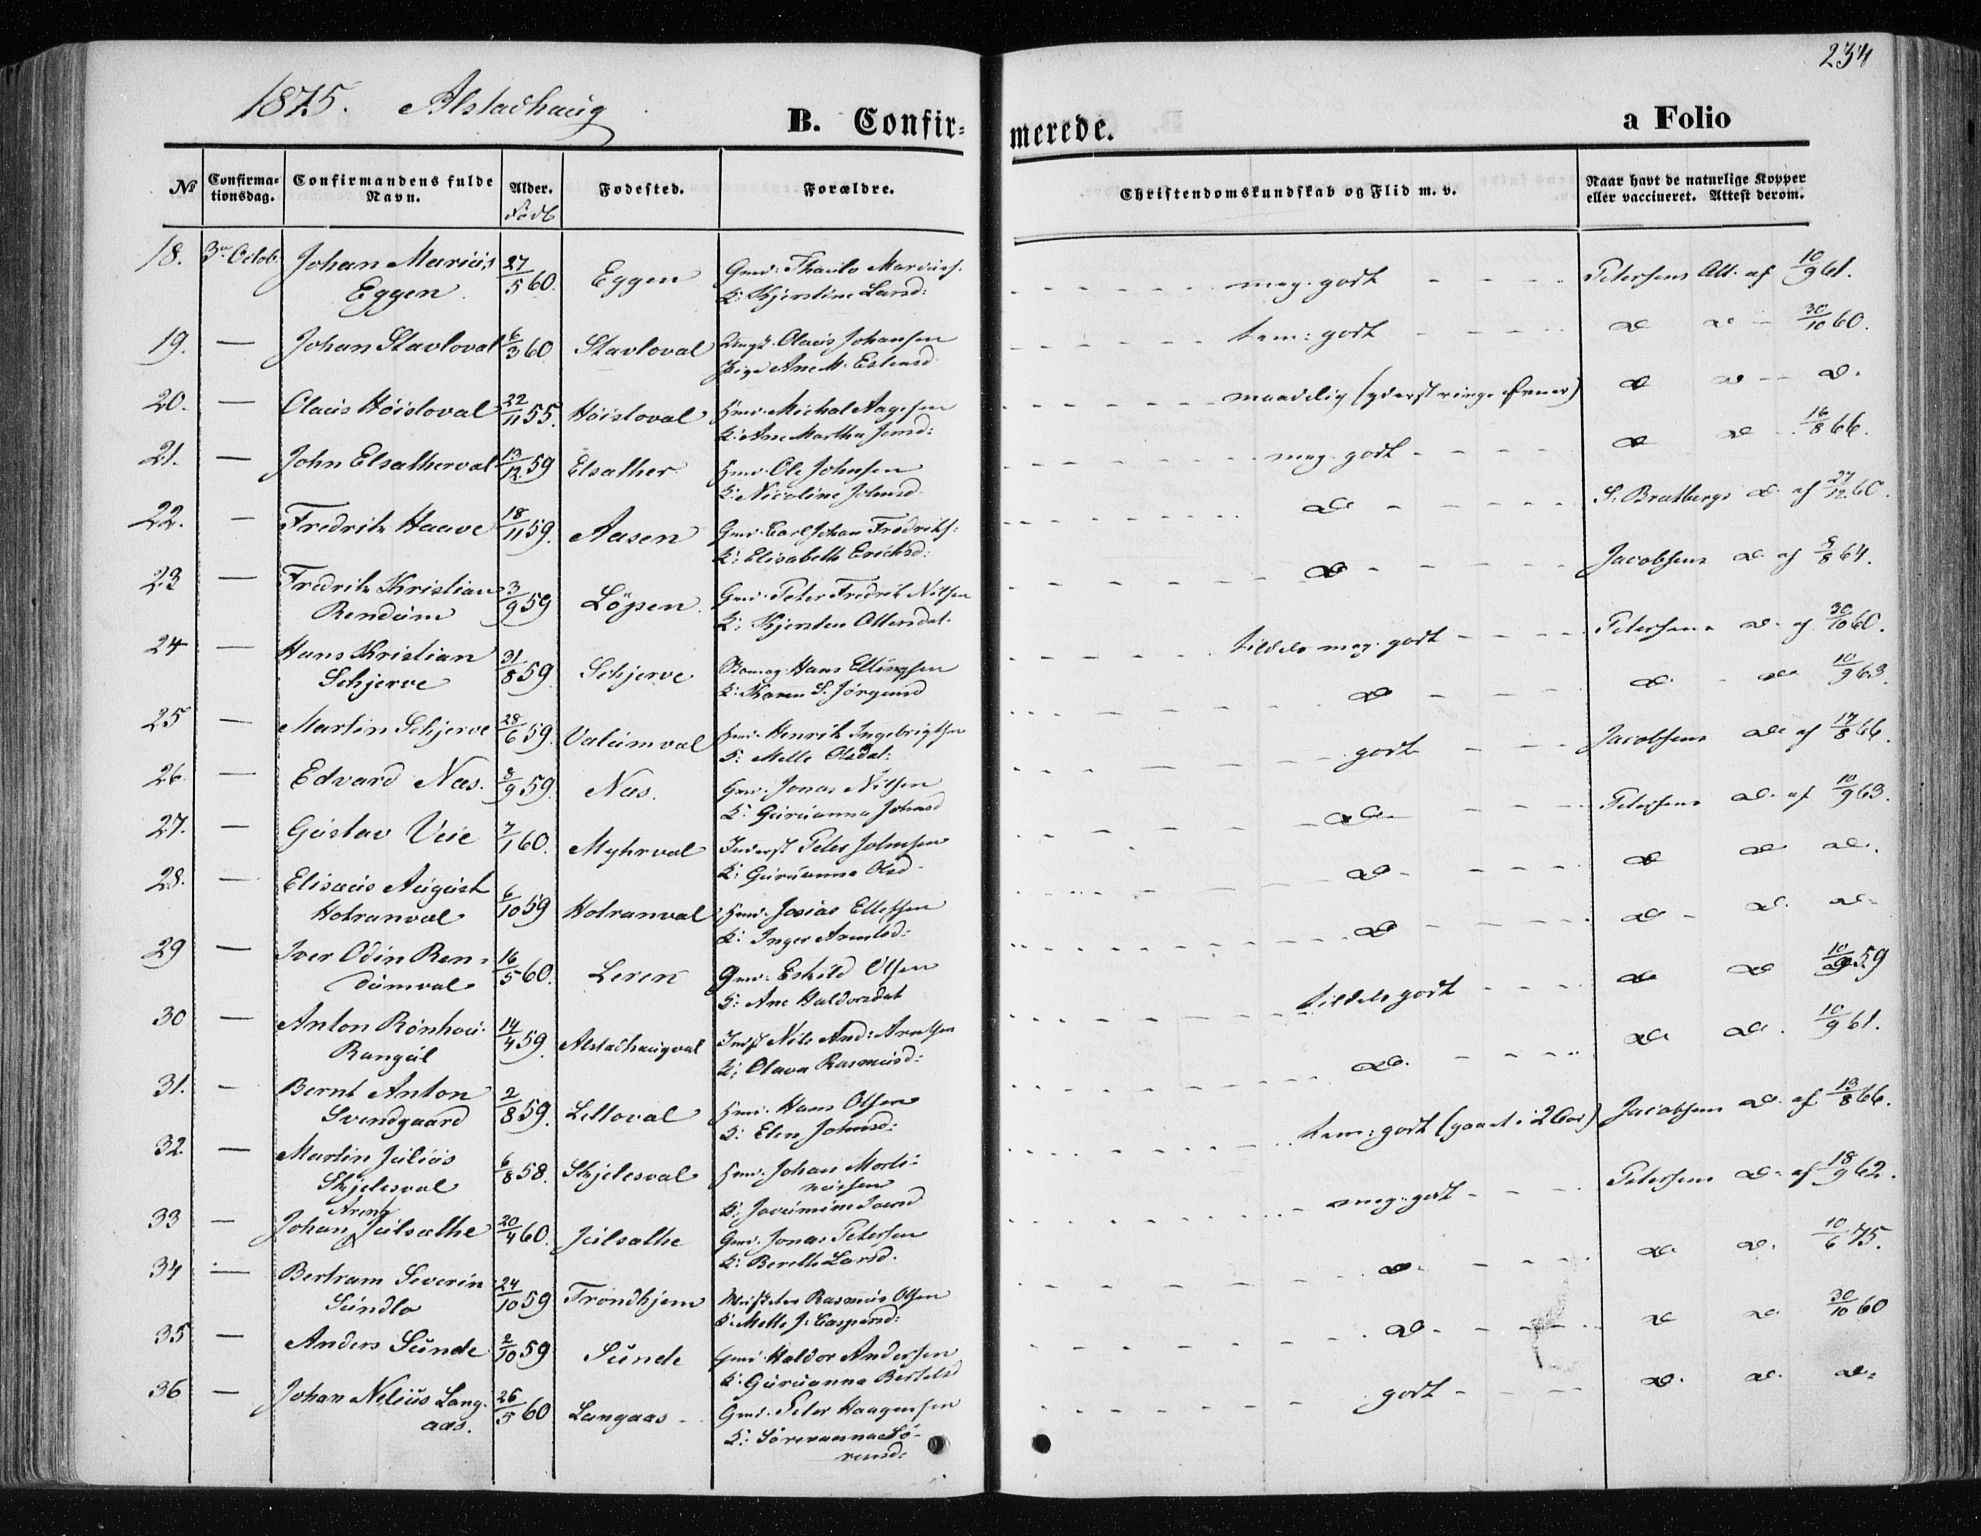 234
1875. Alstadhaug
B. Confirmerede.
a Folio
No Confirmationsdag. Confirmandens fulde Navn. Alder. Født Fødested. Forældre. Christendomskundskab og Flid m. v. Naar havt de naturlige Kopper eller vaccineret. Attest derom.
18. 3die Octob. Johan Marius 27/5 60. Eggen Gmd. Marius. meg. godt Petersens Att. af 10/9 61.
Eggen K: Kjerstine Larsd:
19. — Johan Stavloval 6/3 60 Stavloval Olaus Johansen tem: godt do do 30/10 60.
Pige Ane M. Estensd.
20. — Olaus Höisloval 22/11 55. Höisloval Hmd. Michal Aagesen maadelig (yderst ringe Evner) do do do.
K: Ane Martha Jensd:
21. — John Elsatherval 13/12 59 Elsather Hmd. Ole Johnsen meg. godt do do 16/8 66.
K: Nicoline Johnsd.
22. — Fredrik Haave 18/11 59. Aasen Gmd. Carl Johan Fredriks: do S. Bratbergs do. af 27/12 60.
K: Elisabeth Ericksd:
23 — Fredrik Kristian 3/9 59 Löpen Gmd. Peter Fredrik Nilsen do Jacobsens do af 8/64.
Rendum K: Kjersten Ottersdat.
24 — Hans Kristian 31/8 59 Schjerve Hans Ellingsen tildels meg. godt Petersens do. af 30/10 60.
Schjerve K: Karen S. Jörgensd
25 — Martin Schjerve 28/6 59. Valumval Hmd. Henrik Ingebrigtsen do do. do 10/9 63.
K: Mette Olsdat:
26. — Edvard Næs. 3/9 59. Næs. Gmd. Jonas Nilsen godt Jacobsens do af 17/8 66.
K: Guruanna Johnsd
27. — Gustav Veie 7/1 60. Myhrval Inderst Peter Johnsen do Petersens do. af 10/9 63.
K: Guruanna Olsd.
28. — Elisæus August 6/10 59 Hotranval Hmd. Josias Ellefsen do. do do do.
Hotranval K: Inger Arntsd:
29 — Iver Odin Ren- 16/5 60. Leren Gmd. Eskild Olsen do do do. do.
dumval K: Ane Haldorsdat
30 — Anton Rönhau- 14/4 59. Alstadhaugval Indst Nils And: Arntsen tildels godt do do 10/9 59
Rangul K: Olava Rasmusd:
31. — Bernt Anton 2/8 59. Lelloval Hmd. Hans Olsen do. do do. 10/9 61.
Svendgaard K: Elen Johnsd:
32. — Martin Julius 6/8 58. Skjelesval Hmd. Johan Morti- tem: godt (gaaet i 2 Aar) Jacobsens do. af 13/8 66.
Skjelesval nusen
K: Jaensd
33 — Johan Arent Julsathe 20/4 60. Julsathe Gmd. Jonas Petersen meg. godt Petersens do. af 18/9 62.
K: Berethe Larsd.
34 — Bertram Severin 24/10 59 Trondhjem Rasmus Olsen do. do. do. 10/6 75.
Sundlo K: Mette J. Caspersd:
35 — Anders Sunde 2/10 59 Sunde Gmd. Haldor Andersen do. do do 30/10 60
K: Guruanna Bertelsd
36 — Johan Nelius Lang- 26/5 60 Langaas Gmd. Peter Haagensen godt do. do. do.
aas. K: Sörevanna Sö-
rensd: